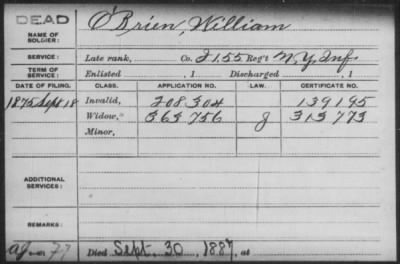 DEAD
NAME OF SOLDIER:
O'Brien, William
SERVICE:
Late rank, Co. I 155 Reg't N.Y. Inf.
TERM OF SERVICE:
Enlisted , 1 Discharged , 1
DATE OF FILING. CLASS. APPLICATION NO. LAW. CERTIFICATE NO.
1875 Sept 18 Invalid, 208304 139195
Widow, 365756 g 313773
Minor,
ADDITIONAL SERVICES:
REMARKS:
77
Died Sept. 30, 1887, at